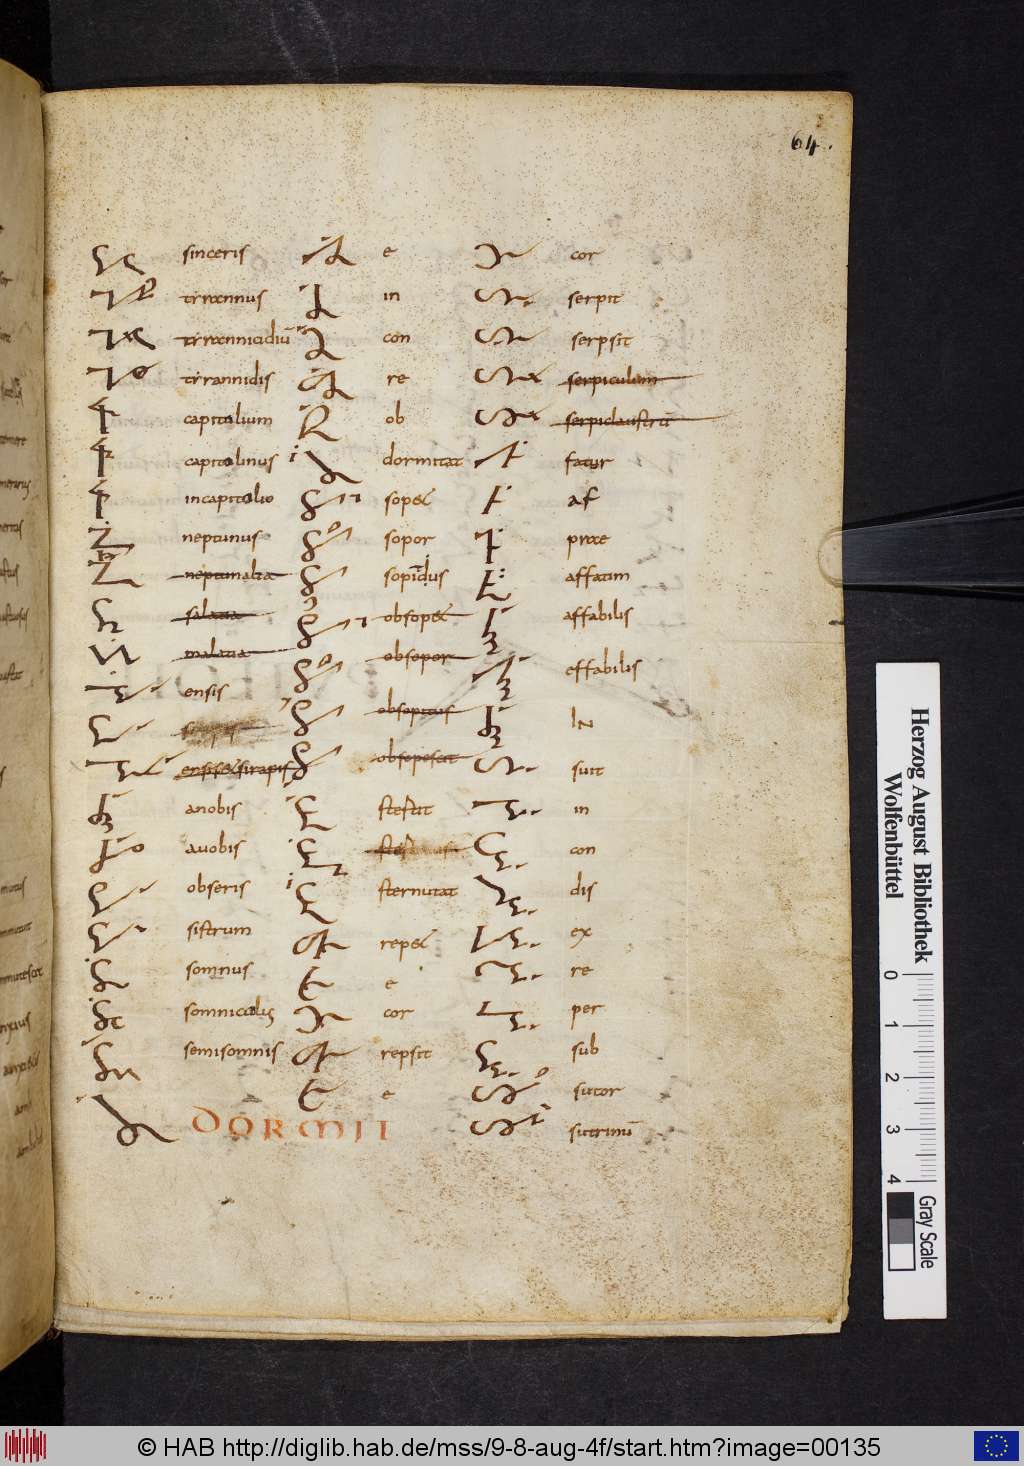 64.
sinceris
tirannus
tirannicidiū
tirannidis
capitolium
capitolinus
incapitolio
neptunus
neptunalia
salacia
malacia
ensis
ensis&sirapis
anobis
auobis
obseris
sistrum
somnus
somniculis
semisomnis
DORMII
e
in
con
re
ob
dormitat
sop&
sopor
sopidus
obsop&
obsopor
obsopitus
obsopescit
stertit
sternutat
rep&
e
cor
repsit
e
cor
serpit
serpsit
serpiculum
serpiclaustru
fatur
af
prae
affatim
affabilis
effabilis
IN
suit
in
con
dis
ex
re
per
sub
sutor
sutrinū
Herzog August Bibliothek
Wolfenbüttel
0 1 2 3 4
Gray Scale
© HAB http://diglib.hab.de/mss/9-8-aug-4f/start.htm?image=00135